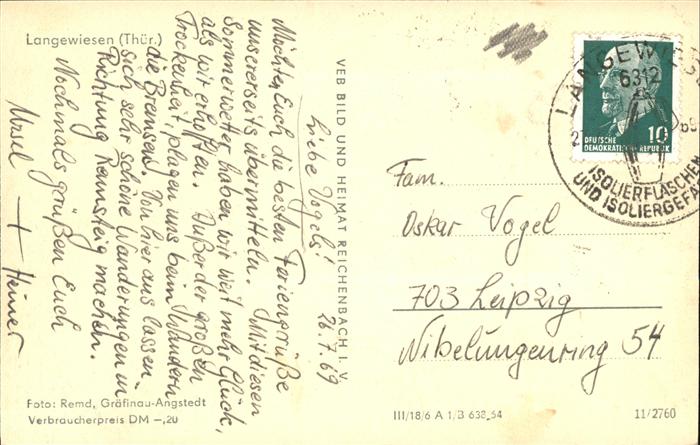 Langewiesen (Thür.)
Liebe Vogels! 26.7.69
Möchten Euch die besten Feriengrüße
unsererseits übermitteln. Mit diesen
Sommerwetter haben wir weit mehr Glück,
als wir erhofften. Außer der großen
Trockenheit, plagen uns beim Wandern
die Bremsen. Von hier aus lassen
sich sehr schöne Wanderungen in
Richtung Rennsteig machen.
Nochmals grüßen Euch
Ursel + Heiner
Foto: Remd, Gräfinau-Angstedt
Verbraucherpreis DM -,20
VEB BILD UND HEIMAT REICHENBACH I. V.
LANGEWIESEN
6312
69
ISOLIERFLASCHEN
UND ISOLIERGEFÄ
10
DEUTSCHE
DEMOKRATISCHE REPUBLIK
Fam.
Oskar Vogel
703 Leipzig
Nibelungenring 54
III/18/6 A 1/B 638/64
11/2760